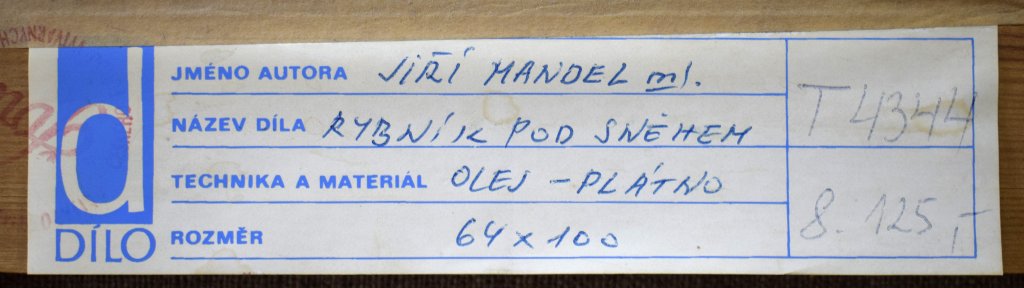 JMÉNO AUTORA JIŘÍ MANDEL ml.
NÁZEV DÍLA RYBNÍK POD SNĚHEM
TECHNIKA A MATERIÁL OLEJ - PLÁTNO
ROZMĚR 64 x 100
d
DÍLO
T 4344
8.125,-